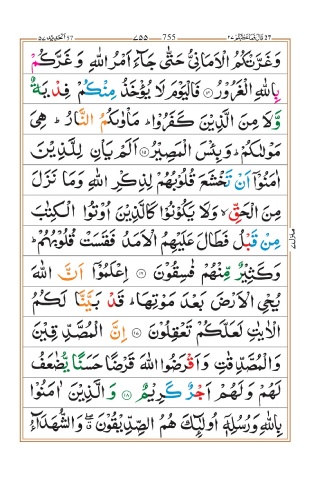 ۷۵۵ 755
وَغَرَّتْكُمُ الْاَمَانِیُّ حَتّٰی جَآءَ اَمْرُ اللّٰهِ وَ غَرَّكُمْ
بِاللّٰهِ الْغَرُوْرُ ۱۴ فَالْیَوْمَ لَا یُؤْخَذُ مِنْكُمْ فِدْیَةٌ
وَّلَا مِنَ الَّذِیْنَ كَفَرُوْا ؕ مَاْوٰىكُمُ النَّارُ ؕ هِیَ
مَوْلٰىكُمْ ؕ وَبِئْسَ الْمَصِیْرُ ۱۵ اَلَمْ یَاْنِ لِلَّذِیْنَ
اٰمَنُوْۤا اَنْ تَخْشَعَ قُلُوْبُهُمْ لِذِكْرِ اللّٰهِ وَمَا نَزَلَ
مِنَ الْحَقِّ ۙ وَلَا یَكُوْنُوْا كَالَّذِیْنَ اُوْتُوا الْكِتٰبَ
مِنْ قَبْلُ فَطَالَ عَلَیْهِمُ الْاَمَدُ فَقَسَتْ قُلُوْبُهُمْ ؕ
وَكَثِیْرٌ مِّنْهُمْ فٰسِقُوْنَ ۱۶ اِعْلَمُوْۤا اَنَّ اللّٰهَ
یُحْیِ الْاَرْضَ بَعْدَ مَوْتِهَا ؕ قَدْ بَیَّنَّا لَكُمُ
الْاٰیٰتِ لَعَلَّكُمْ تَعْقِلُوْنَ ۱۷ اِنَّ الْمُصَّدِّقِیْنَ
وَالْمُصَّدِّقٰتِ وَ اَقْرَضُوا اللّٰهَ قَرْضًا حَسَنًا یُّضٰعَفُ
لَهُمْ وَ لَهُمْ اَجْرٌ كَرِیْمٌ ۱۸ وَ الَّذِیْنَ اٰمَنُوْا
بِاللّٰهِ وَرُسُلِهٖۤ اُولٰٓىِٕكَ هُمُ الصِّدِّیْقُوْنَ ۖۗ وَ الشُّهَدَآءُ